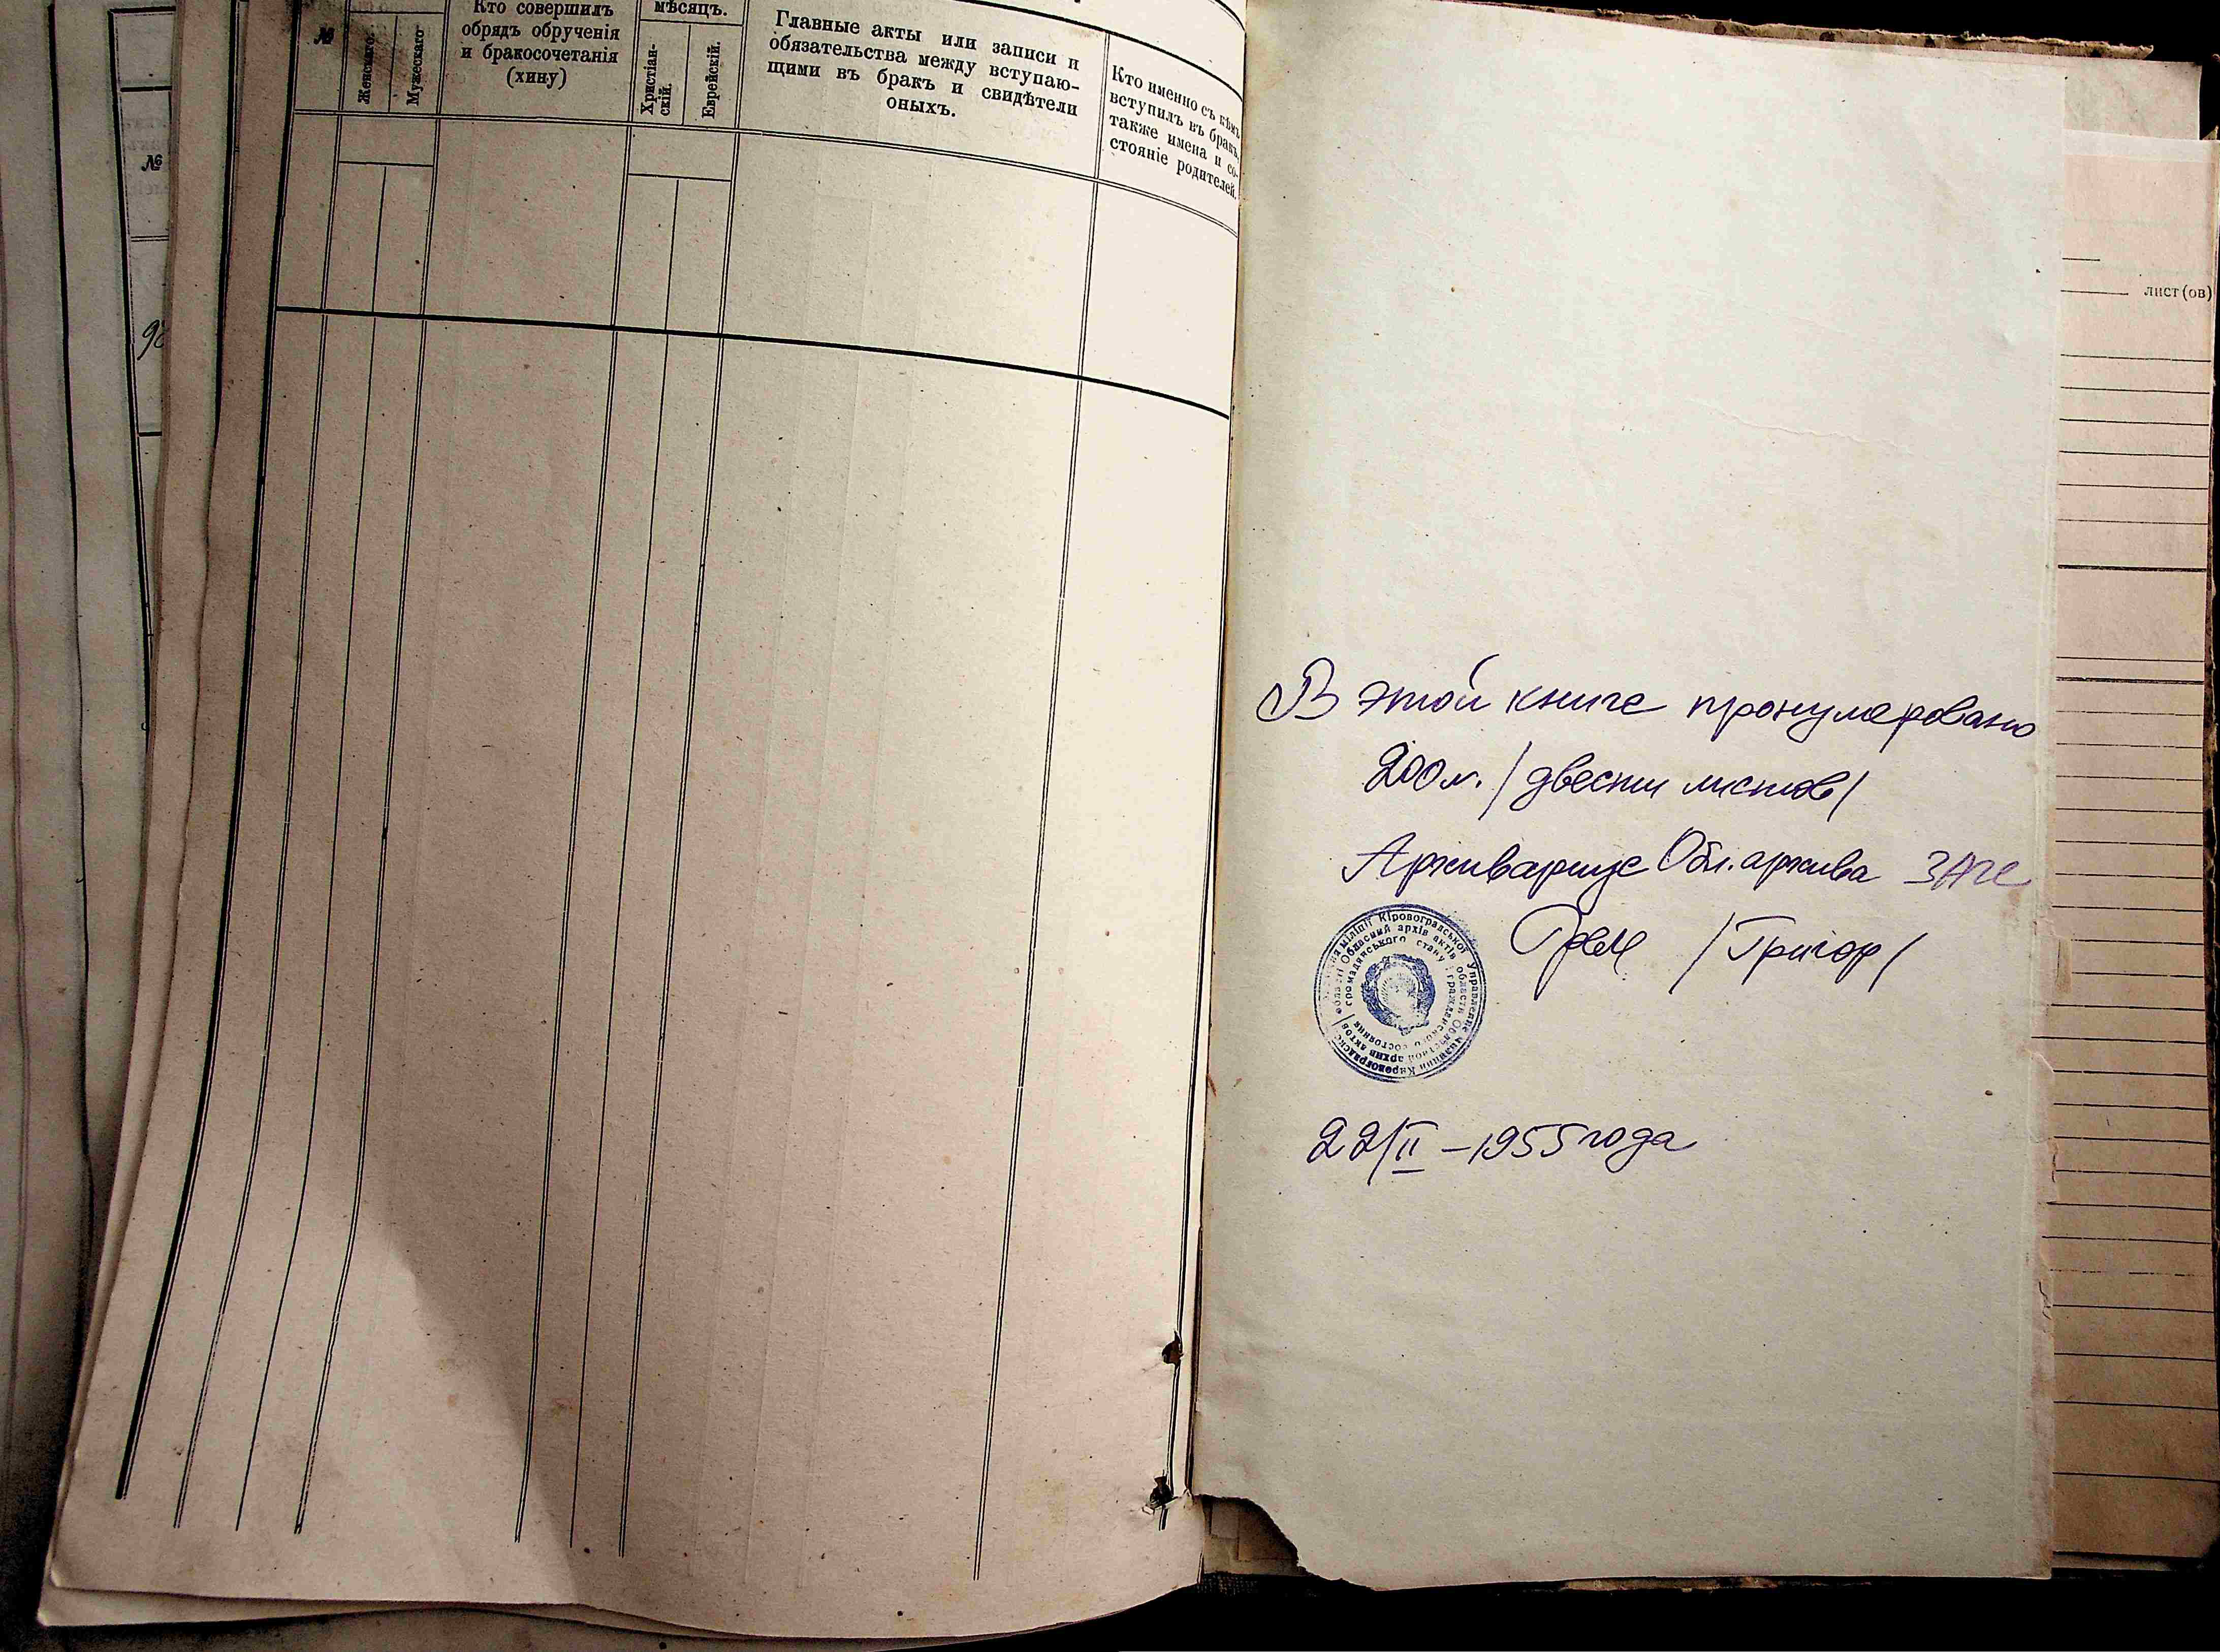 №
Женскаго.
Мужескаго
Кто совершилъ
обрядъ обрученія
и бракосочетанія
(хину)
мѣсяцъ.
Христіан-
скій.
Еврейскій.
Главные акты или записи и
обязательства между вступаю-
щими въ бракъ и свидѣтели
оныхъ.
Кто именно съ кѣмъ
вступилъ въ бракъ,
также имена и со-
стояніе родителей.
№
лист(ов)
В этой книге пронумеровано
200 л. / двести листов /
Архивариус Обл. архива ЗАГС
/ Григор /
Кіровоградської
області Обласний архів актів
громадянського стану
гражданского состояния
22/II – 1955 года